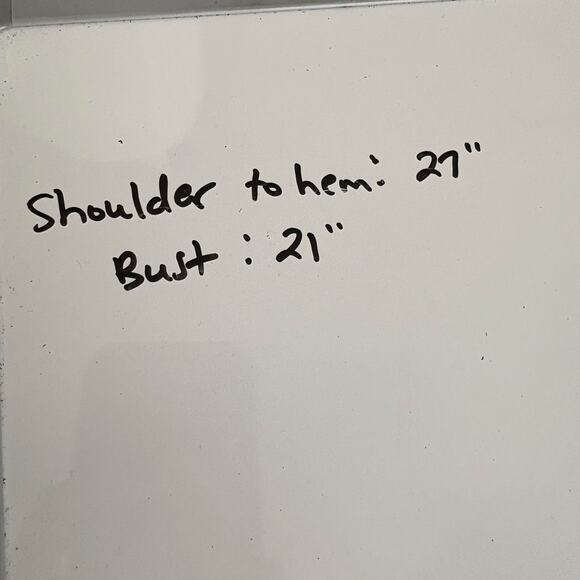 Shoulder to hem: 27"
Bust : 21"